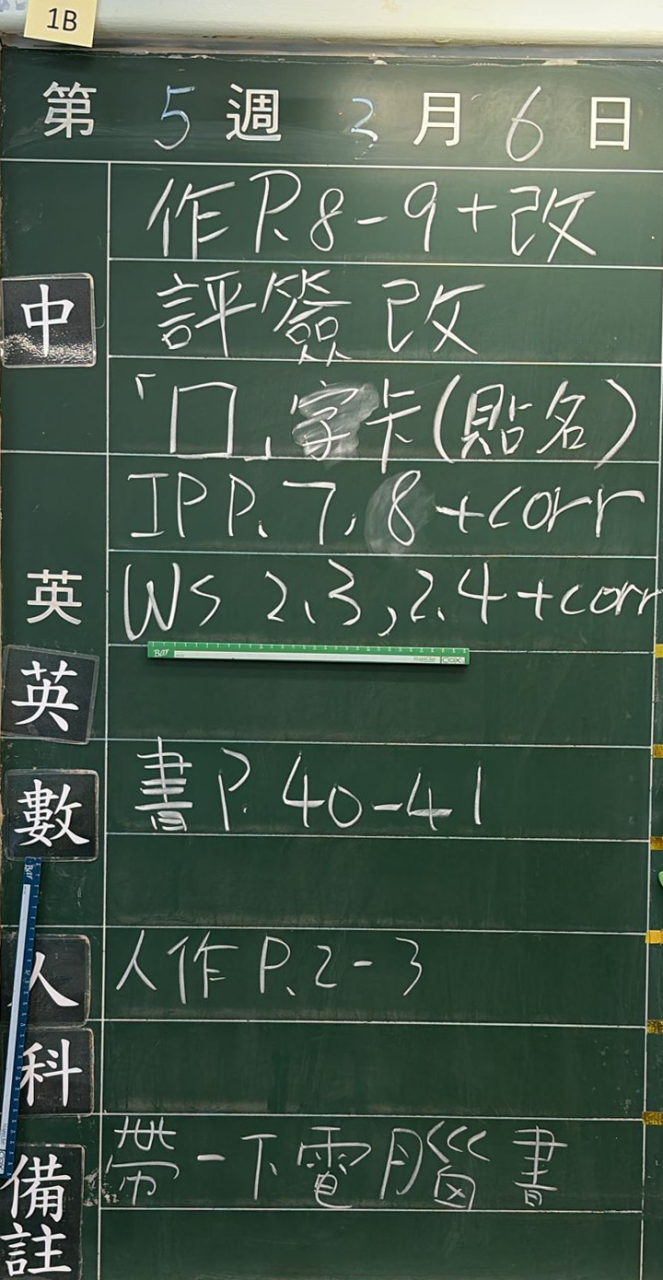 1B
第 5 週 3 月 6 日
作 P.8-9+改
中
評簽改
「口」字卡(貼名)
IP P.7,8+corr
英
WS 2.3,2.4+corr
英
數
書 P.40-41
人
人作 P.2-3
科
備註
帶一下電腦書